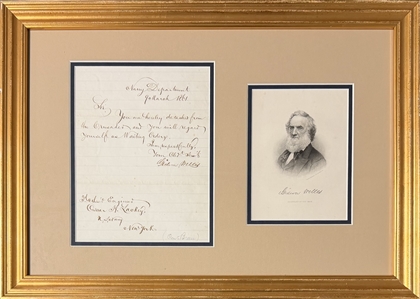 Navy Department
March 1861.
Sir,
You are hereby detached from
the Crusader, and you will regard
yourself as Waiting Orders.
I am respectfully,
Your Obdt. Servt.
Gideon Welles
New York
Gideon Welles